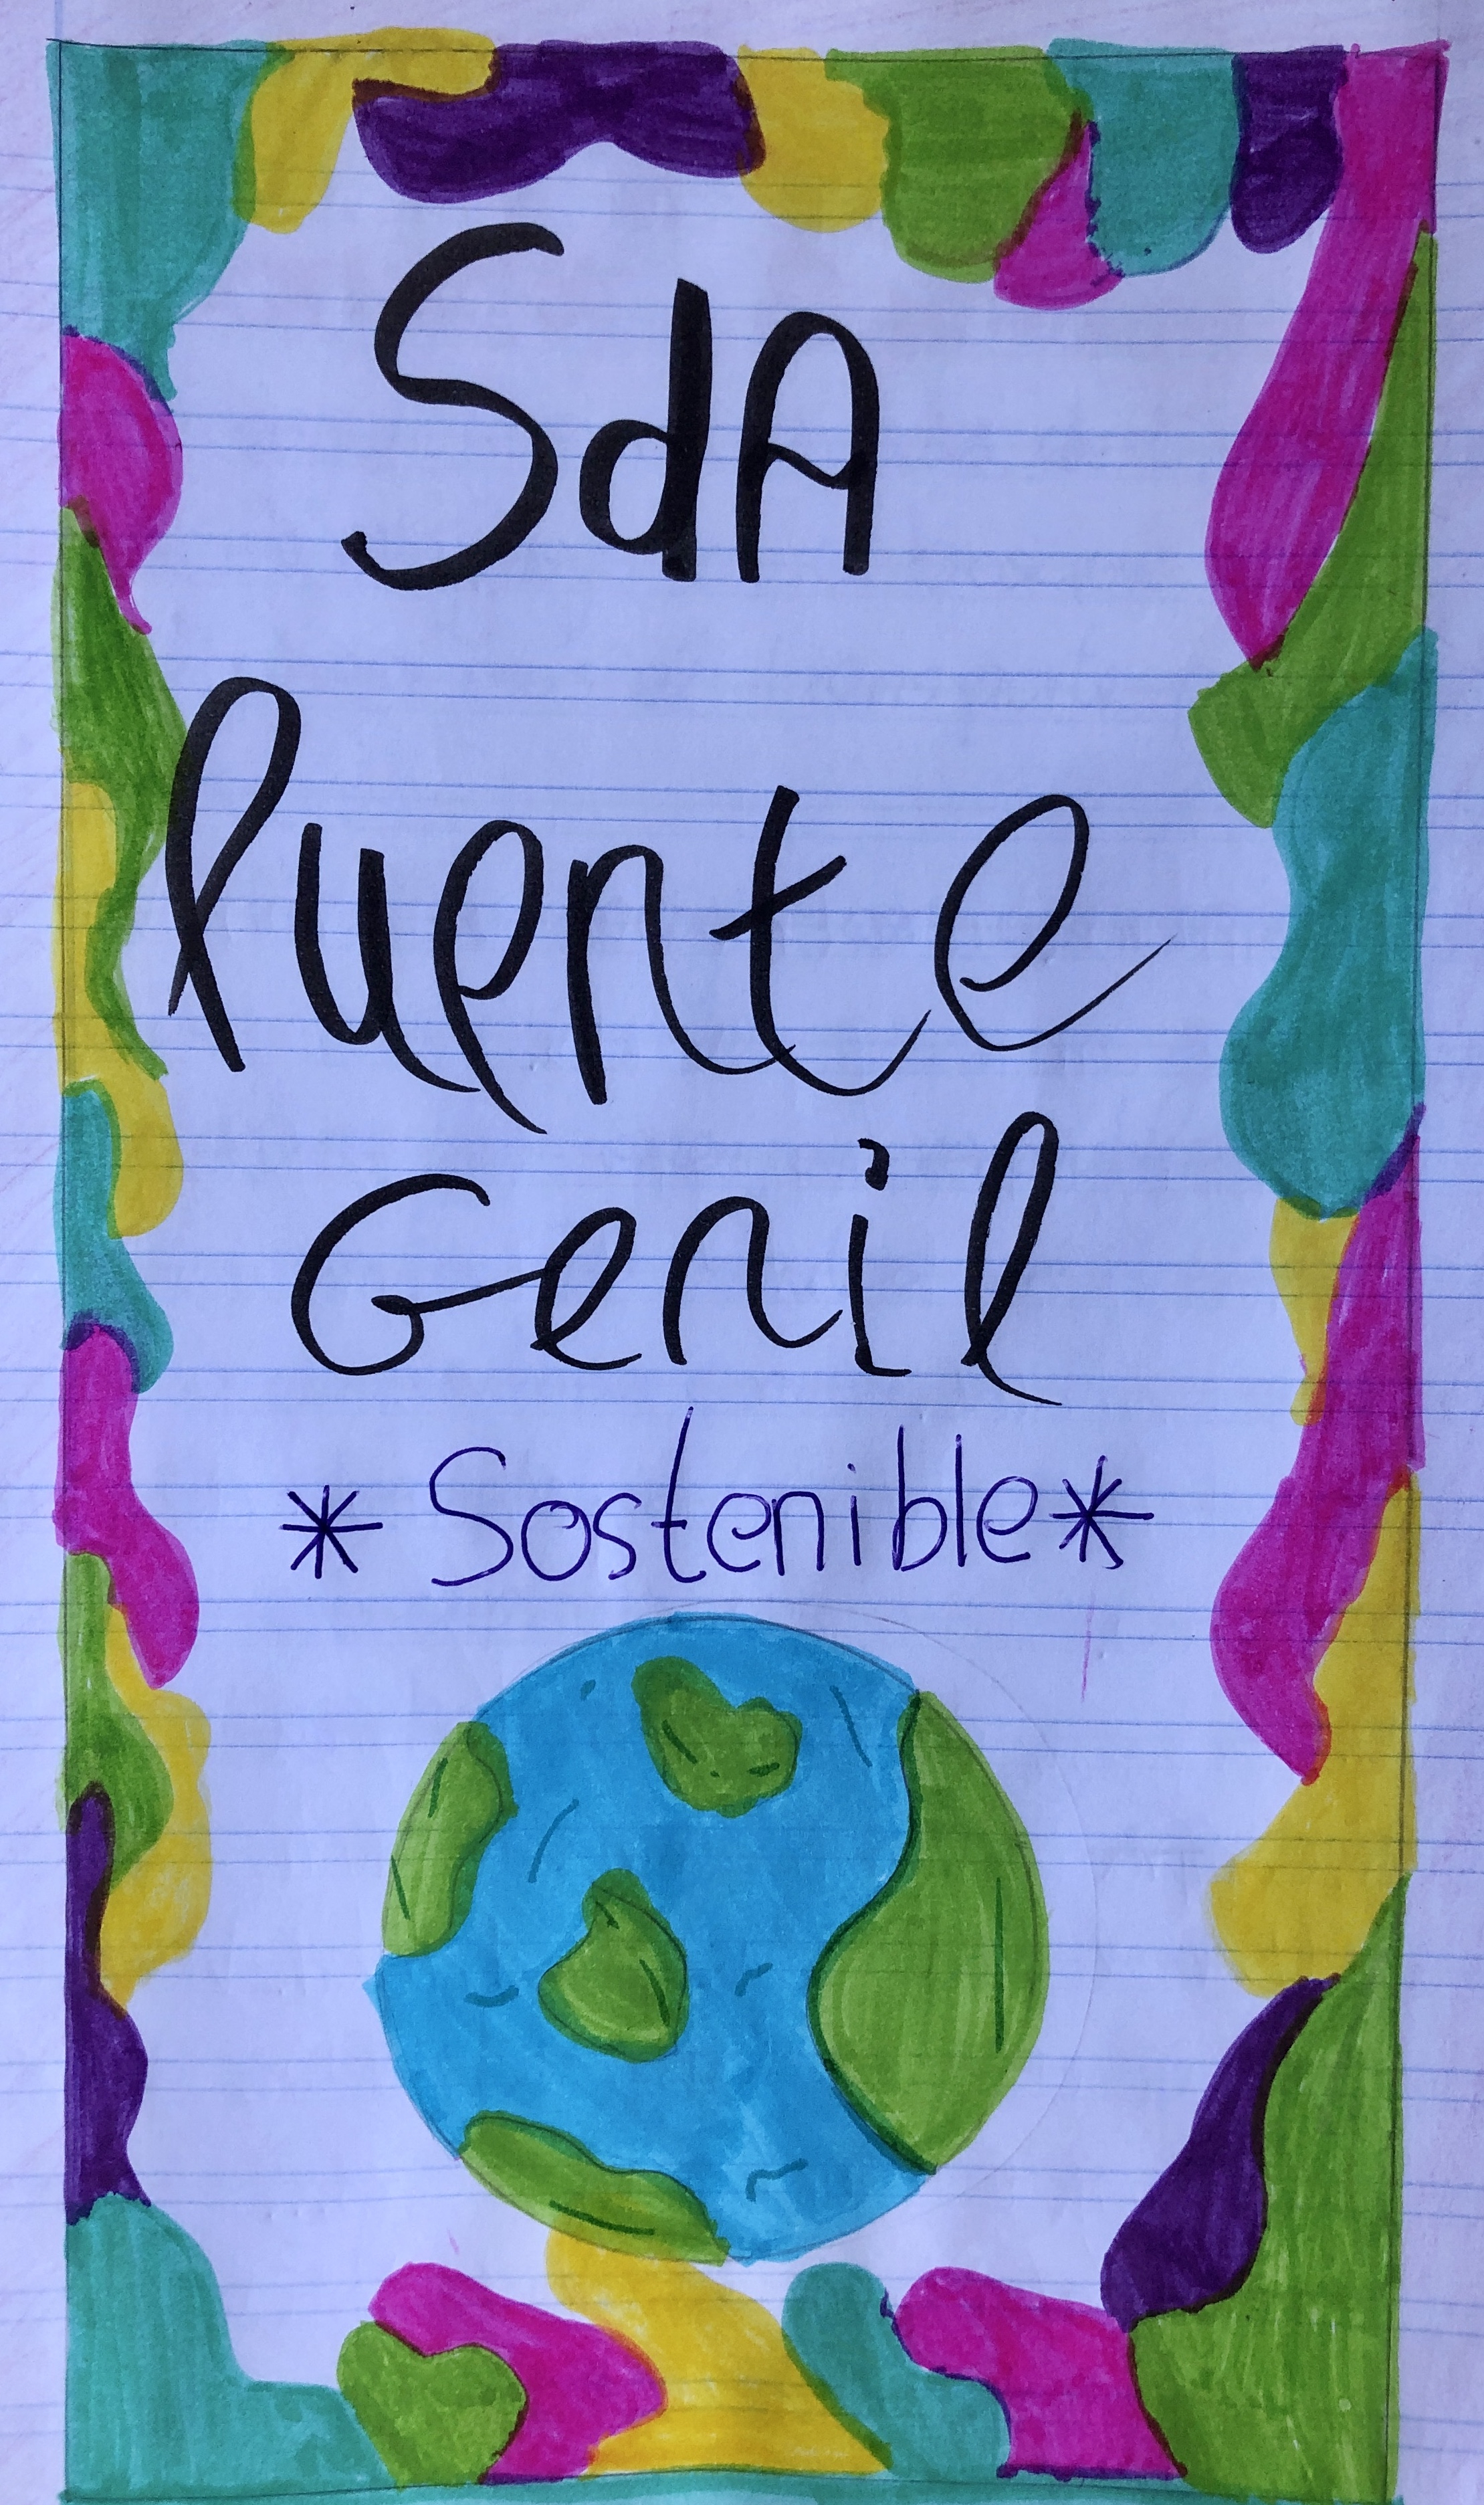 SdA
Puente
Genil
* Sostenible *